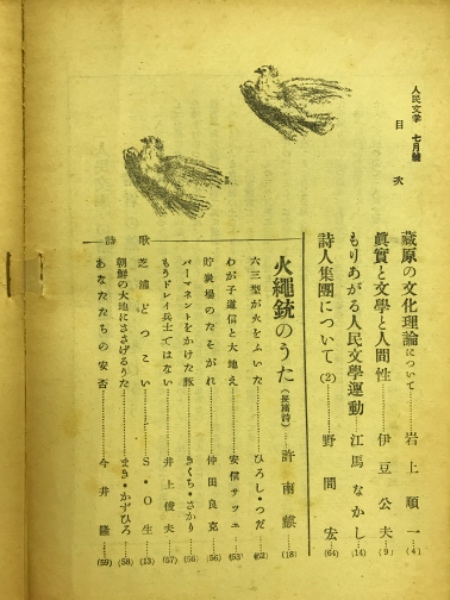 人民文学 七月號
目次
蔵原の文化理論について……岩上順一…(4)
眞實と文學と人間性……伊豆公夫…(9)
もりあがる人民文學運動……江馬なかし…(14)
詩人集團について(2)……野間宏…(64)
火繩銃のうた(長篇詩)……許南麒…(18)
六三型が火をふいた……ひろし・つだ…(52)
わが子道信と大地え……安信サツエ…(53)
貯炭場のたそがれ……仲田良克…(56)
パーマネントをかけた豚……きくち・さかり…(56)
もうドレイ兵士ではない……井上俊夫…(57)
詩歌
芝浦どつこい……S・O生…(13)
朝鮮の大地にささげるうた……まき・かずひろ…(58)
あなたたちの安否……今井隆…(59)